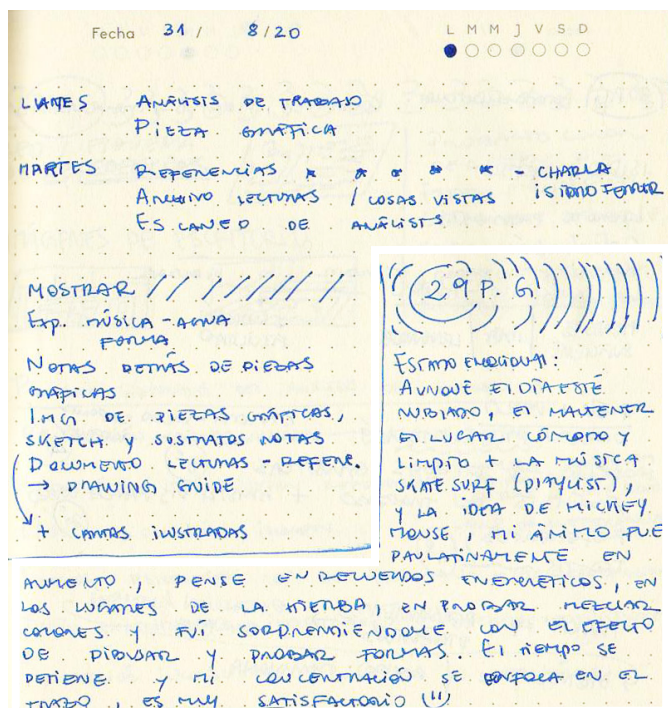 Fecha 31 / 8/20
L M M J V S D
LUNES ANÁLISIS DE TRABAJO
PIEZA GRÁFICA
MARTES REFERENCIAS * * * * * - CHARLA
ISIDRO FERRER
ARCHIVO LECTURAS / COSAS VISTAS
ESCANEO DE ANÁLISIS
MOSTRAR / / / / / / / / /
EXP. MÚSICA - AGUA
FORMA
NOTAS DETRÁS DE PIEZAS
GRÁFICAS
IMG. DE PIEZAS GRÁFICAS,
SKETCH Y SUSTRATOS NOTAS
DOCUMENTO LECTURAS - REFERE.
→ DRAWING GUIDE
+ CARTAS ILUSTRADAS
29 P. G
ESTADO EMOCIONAL:
AUNQUE EL DÍA ESTÉ
NUBLADO, EL MANTENER
EL LUGAR CÓMODO Y
LIMPIO + LA MÚSICA
SKATE SURF (PLAYLIST),
Y LA IDEA DE MICKEY
MOUSE, MI ÁNIMO FUE
PAULATINAMENTE EN
AUMENTO, PENSE EN RECUERDOS ENERGÉTICOS, EN
LOS LUGARES DE LA HIERBA EN PROBAR MEZCLAR
COLORES Y FUI SORPRENDIÉNDOME CON EL EFECTO
DE DIBUJAR Y PROBAR FORMAS. EL TIEMPO SE
DETIENE Y MI CONCENTRACIÓN SE ENFOCA EN EL
TRAZO, ES MUY SATISFACTORIO (")